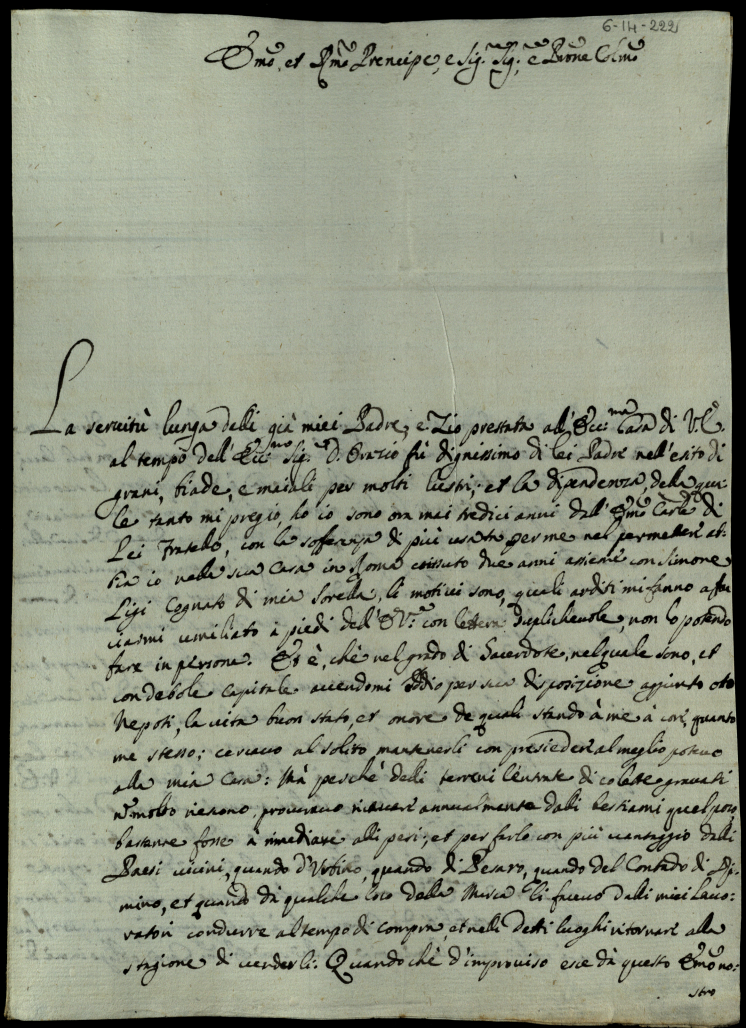 6-14-222
Emo, et Rmo Prencipe, e Sig.r Sig.r, e Prone Colmo
La seruitù lunga delli già miei Padre, e Zio prestata all'Ecc.ma Casa di V.E.
al tempo dell'Ecc.mo Sig.r D. Orazio fù dignissimo di lei Padre nell'esito di
grani, biade, e maiali per molti lustri; et la dipendenza, della qua-
le tanto mi pregio, ho io sono ora mai tredici anni dall'Emo Card.le di
Lei Fratello, con la sofferenza di più usata per me nel permettere ab-
bia io nella sua Casa in Roma conuisuto due anni assieme con Simone
Ligi Cognato di mia Sorella, li motiui sono, quali ardito mi fanno a fac-
ciarmi umiliato à piedi dell'E.V.ra con lettera supplicheuole, non lo potendo
fare in persona. Et è, chè nel grado di Sacerdote, nel quale sono, et
con debole capitale auendomi Iddio per sua disposizione agiunto otto
Nepoti, la uita buon stato, et onore de quali stando à me à core, quanto
me stesso; cercauo al solito mantenerli con presiedere al meglio poteuo
alla mia Casa: Mà perchè delli terreni l'entrate di colette grauati
nō molto uengono; procurauo ricauare annualmente dalli bestiami quel poco,
bastante fosse à rimediare alli pesi; et per farlo con più uantaggio dalli
Paesi uicini, quando d'Urbino, quando di Pesaro, quando del Contado di Ri-
mino, et quando dà qualche loco della Marca li faceuo dalli miei Lauo-
ratori condurre al tempo di compra, et nelli detti luoghi ritornare alla
stagione di uenderli: Quando chè d'improuiso esce dà questo Emo no-
stro